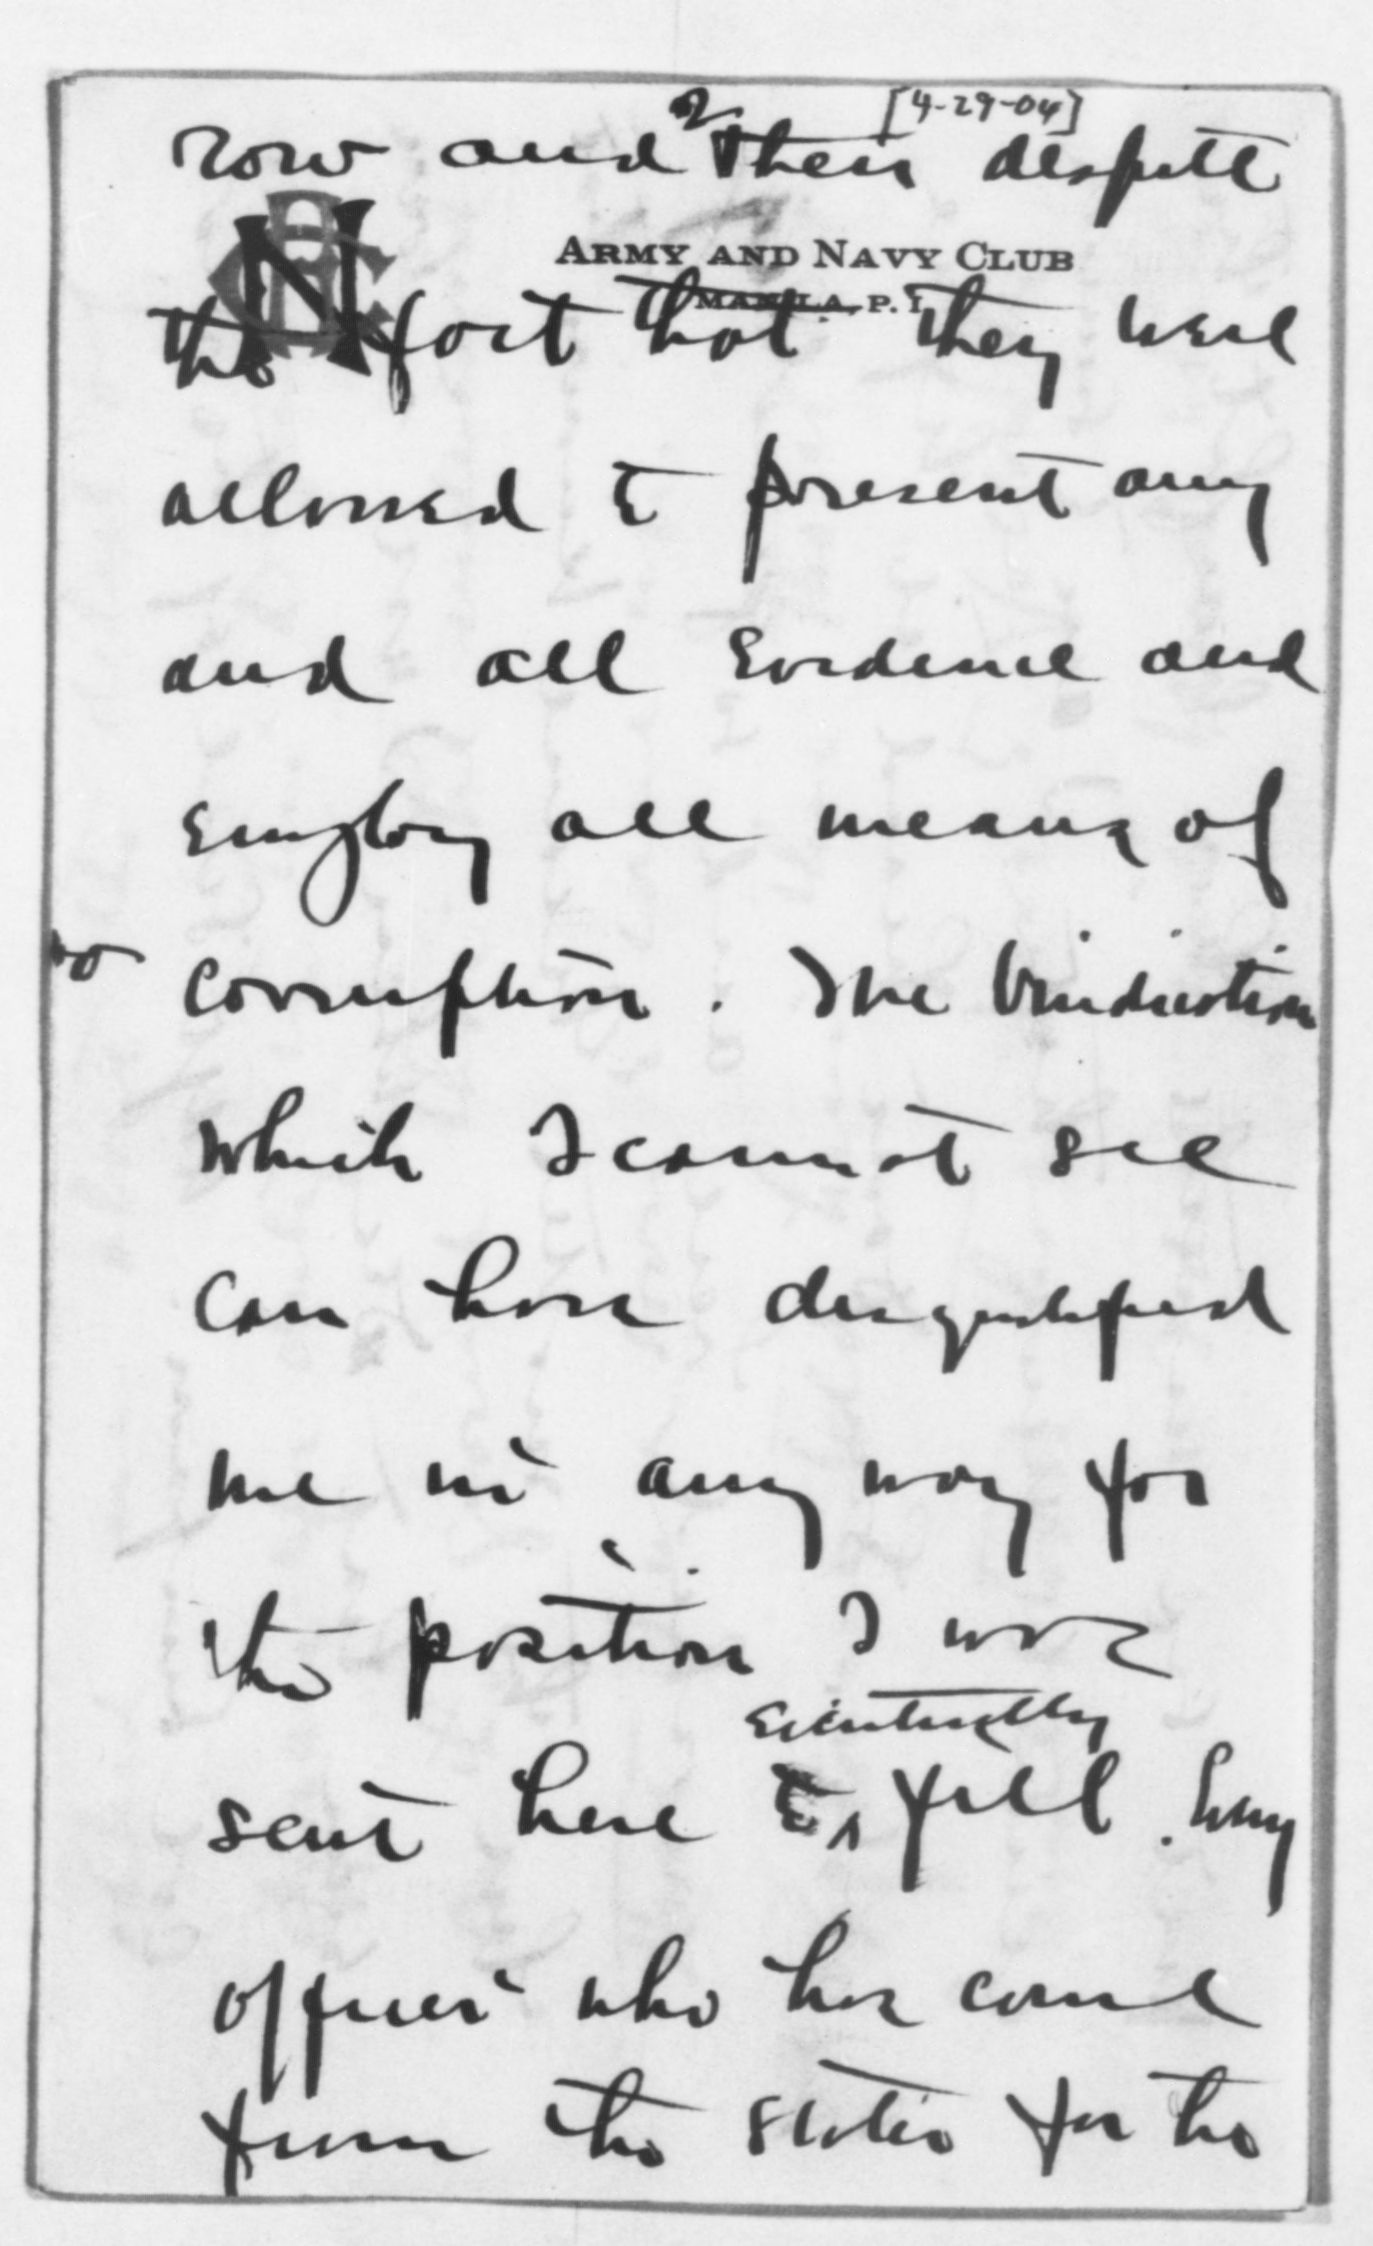 2
[4-29-04]
row and then despite
ARMY AND NAVY CLUB
MANILA, P. I.
the fact that they were
allowed to present any
and all evidence and
employ all means of
corruption. The vindication
which I cannot see
can have disqualified
me in any way for
the position I was
eventually
sent here to ^ fill. Every
officer who has come
from the States for the